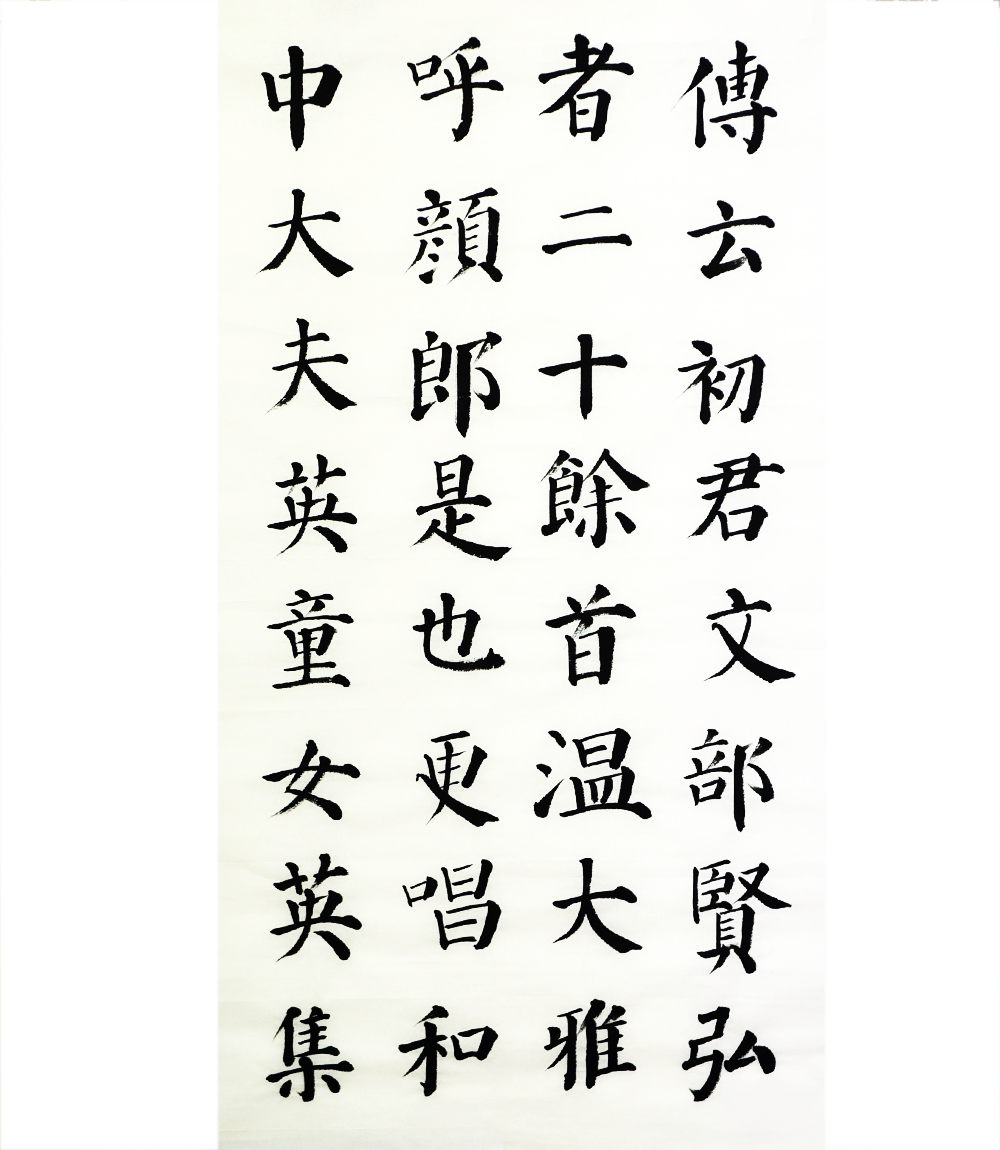 傳云初君文部賢弘
者二十餘首温大雅
呼顔郎是也更唱和
中大夫英童女英集